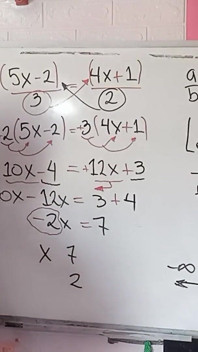 (5x-2) = (4x+1)
3 2
2(5x-2)=+3(4x+1)
10x-4=+12x+3
0x-12x=3+4
-2x=7
x 7
2
a
b
-∞